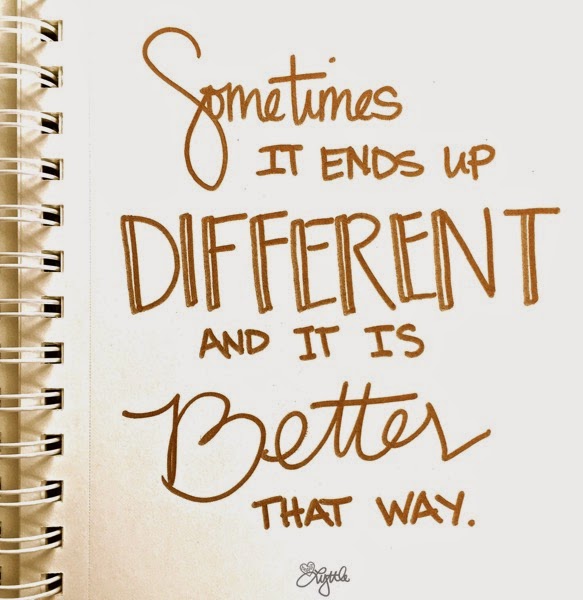 Sometimes
IT ENDS UP
DIFFERENT
AND IT IS
Better
THAT WAY.
Lyttle